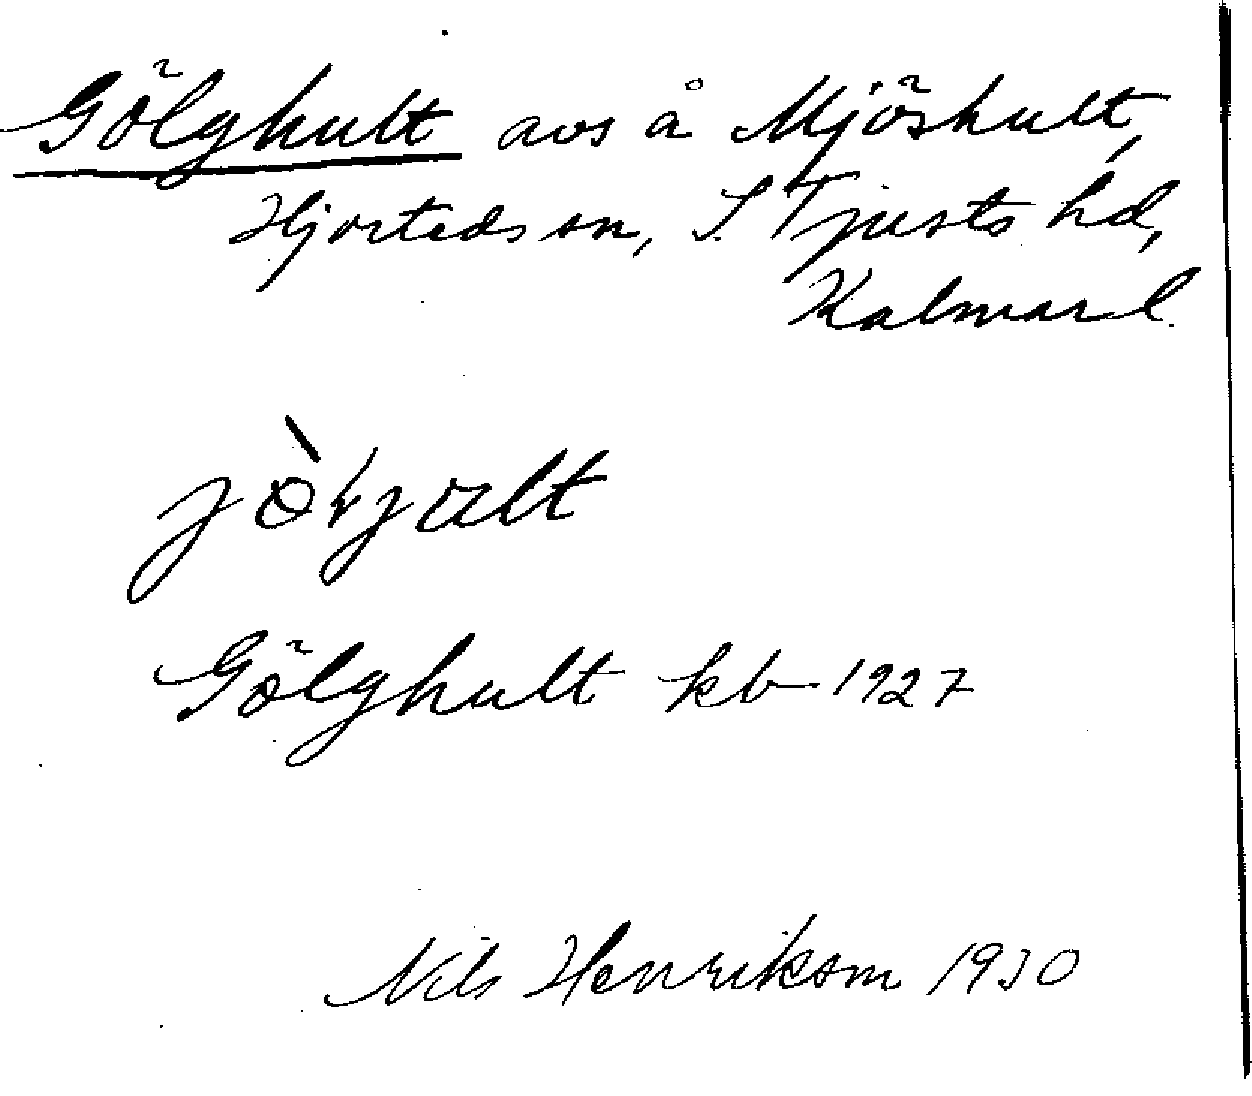 Gölghult avs å Mjöshult,
Hjorteds sn, S. Tjusts hd,
Kalmar l.
Gölghult kb 1927
Nils Henrikson 1930